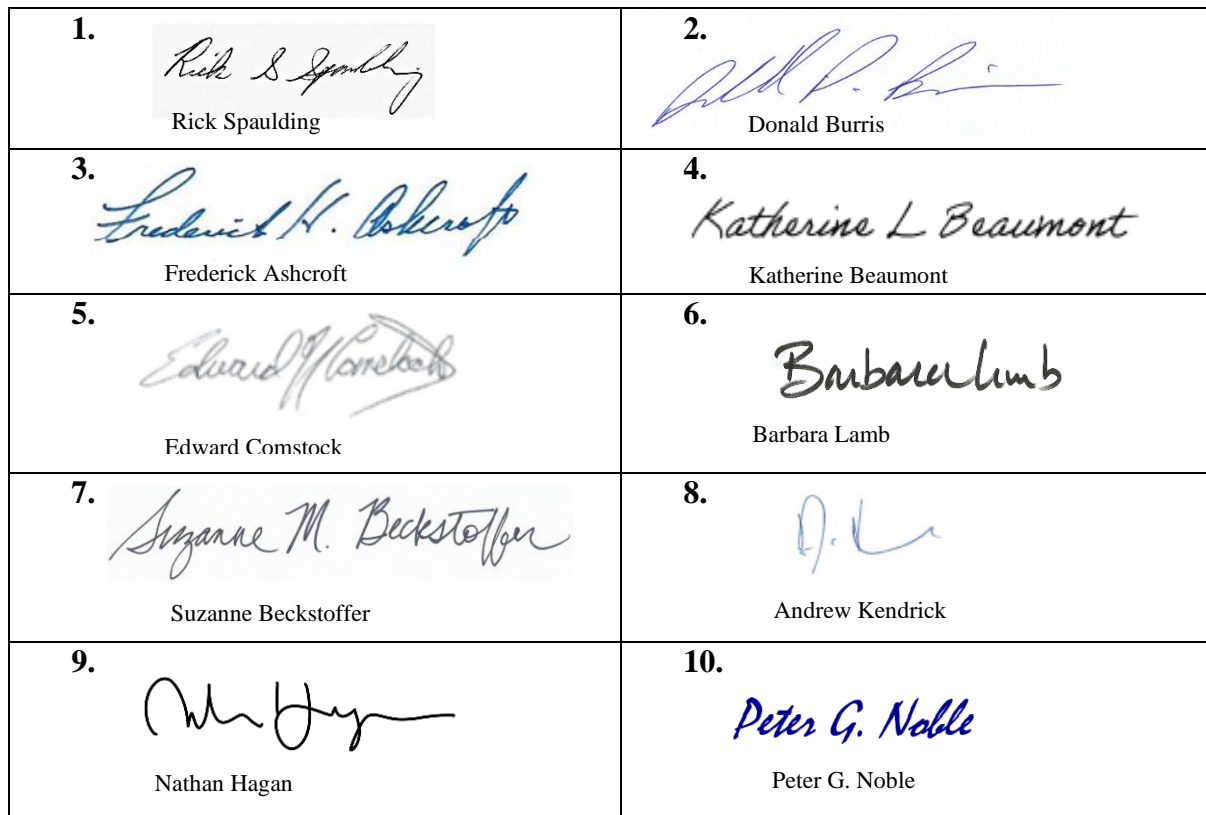 1.
Rick S Spaulding
Rick Spaulding
2.
D. B
Donald Burris
3.
Frederick H. Ashcroft
Frederick Ashcroft
4.
Katherine L Beaumont
Katherine Beaumont
5.
Edward Comstock
Edward Comstock
6.
Barbara Lamb
Barbara Lamb
7.
Suzanne M. Beckstoffer
Suzanne Beckstoffer
8.
Andrew Kendrick
9.
Nathan Hagan
10.
Peter G. Noble
Peter G. Noble